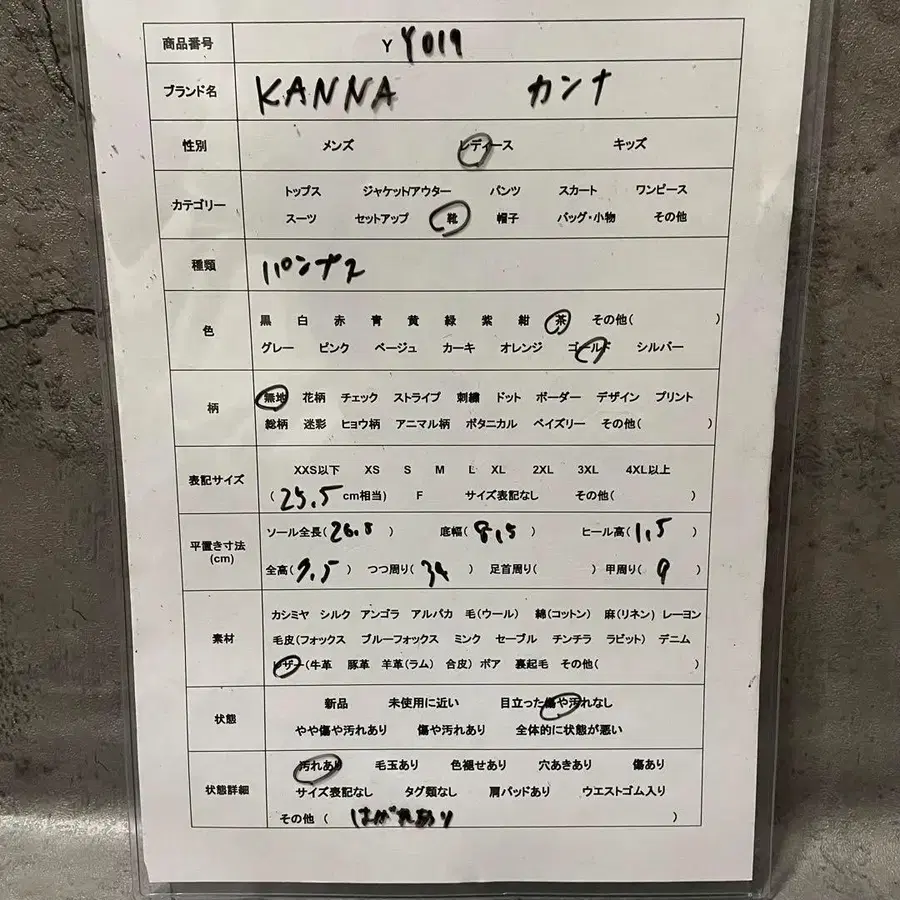 商品番号 Y Y019
ブランド名 KANNA カンナ
性別 メンズ レディース キッズ
カテゴリー トップス ジャケット/アウター パンツ スカート ワンピース
スーツ セットアップ 靴 帽子 バッグ・小物 その他
種類 パンプス
色 黒 白 赤 青 黄 緑 紫 紺 茶 その他( )
グレー ピンク ベージュ カーキ オレンジ ゴールド シルバー
柄 無地 花柄 チェック ストライプ 刺繍 ドット ボーダー デザイン プリント
総柄 迷彩 ヒョウ柄 アニマル柄 ボタニカル ペイズリー その他( )
表記サイズ XXS以下 XS S M L XL 2XL 3XL 4XL以上
(25.5cm相当) F サイズ表記なし その他( )
平置き寸法 (cm) ソール全長(26.5) 底幅(8.5) ヒール高(1.5)
全高(9.5) つつ周り(34) 足首周り( ) 甲周り(9)
素材 カシミヤ シルク アンゴラ アルパカ 毛(ウール) 綿(コットン) 麻(リネン) レーヨン
毛皮(フォックス ブルーフォックス ミンク セーブル チンチラ ラビット) デニム
レザー(牛革 豚革 羊革(ラム) 合皮) ボア 裏起毛 その他( )
状態 新品 未使用に近い 目立った傷や汚れなし
やや傷や汚れあり 傷や汚れあり 全体的に状態が悪い
状態詳細 汚れあり 毛玉あり 色褪せあり 穴あきあり 傷あり
サイズ表記なし タグ類なし 肩パッドあり ウエストゴム入り
その他 ( はがれあり )